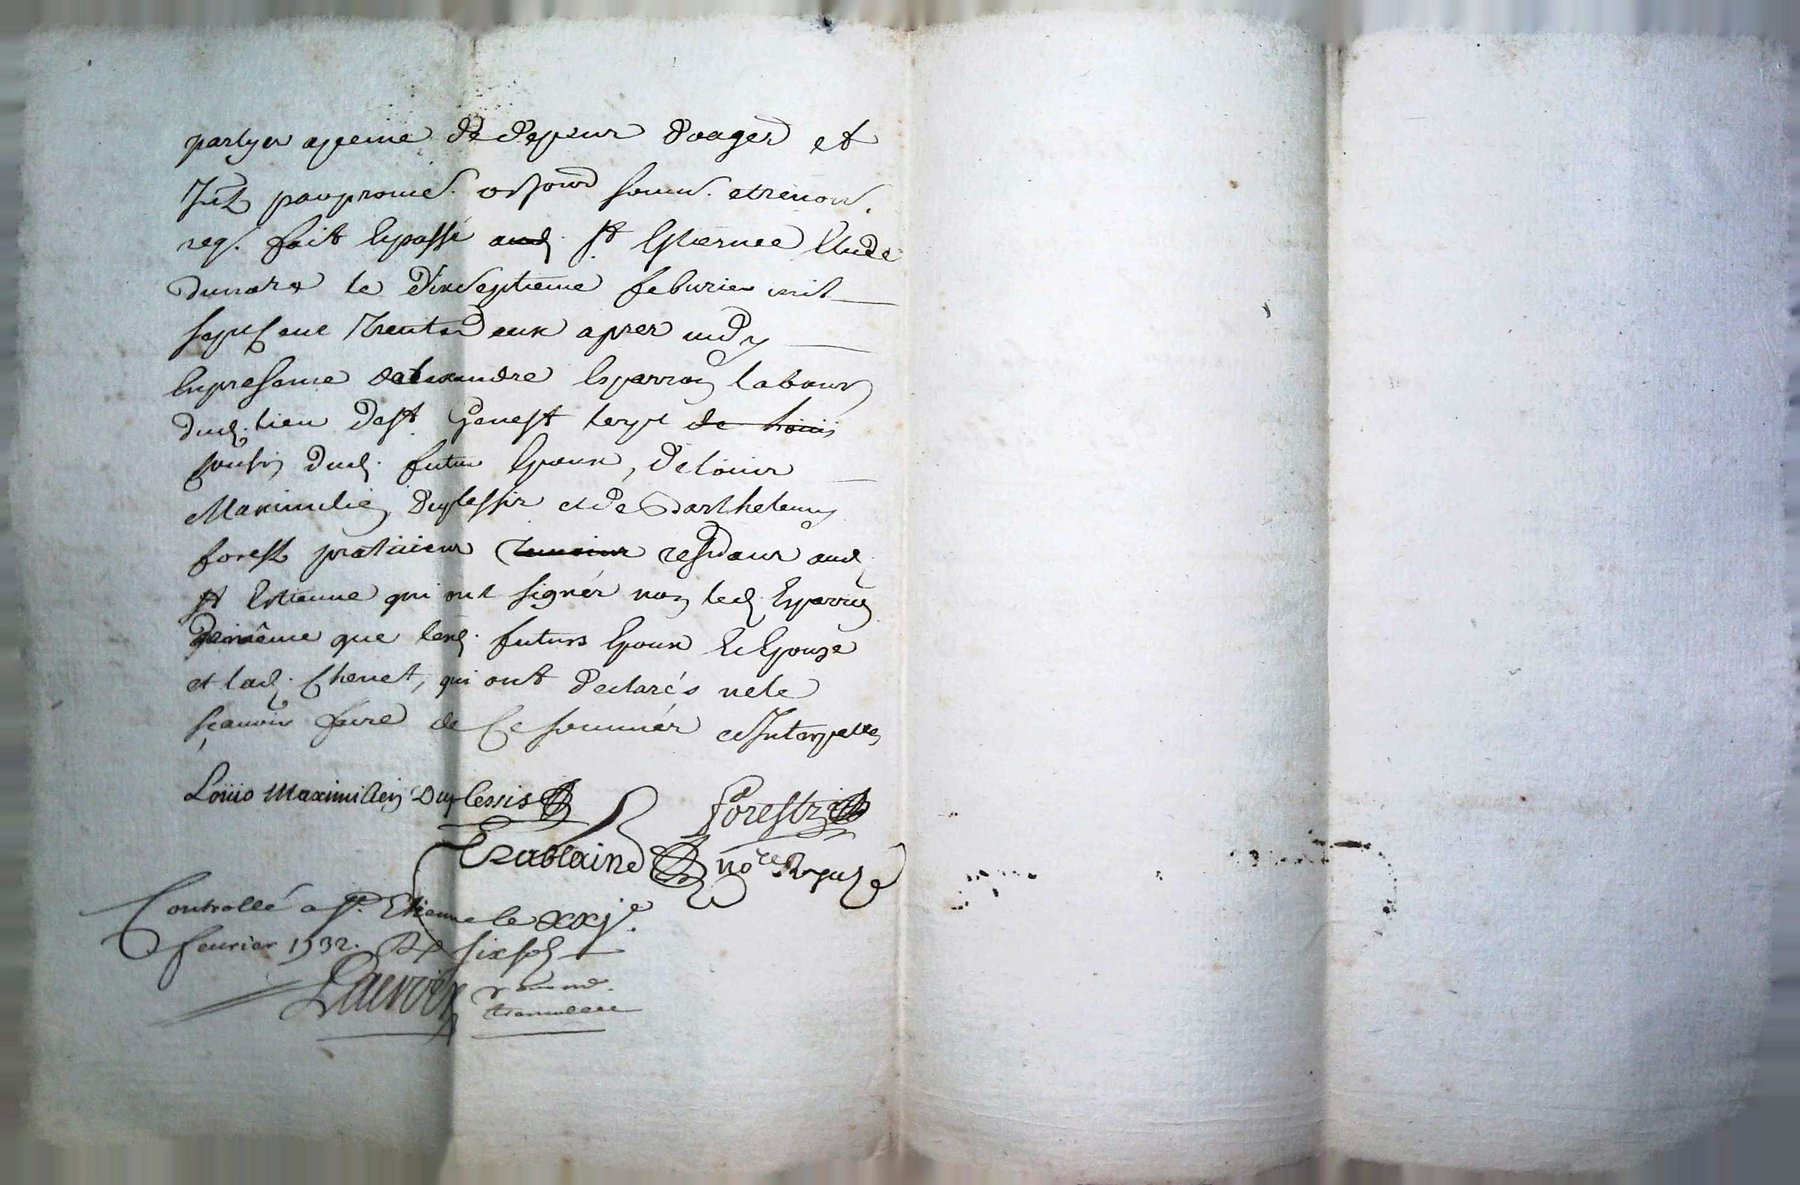 partyes appeine de depens domages et
Jnt par promes. ont jours soum. et renon.
req. fait et passé aud. St Estienne Etude
dunore le dixseptieme feburier mil
sept cent Trente deux apres midy
En presance dalexandre Esparron labour
dud. lieu de St Genest Lerpt de hiuis
cousin dud. futur Epoux, de Louis
Maximilien Duplessis et de Barthelemy
forest praticiens Temoins residans aud.
St Estienne qui ont signés non led. Esparron
de même que lesd. futurs Epoux Et Epouze
et lad. Chenet, qui ont declarés ne le
sçavoir faire de Ce sommés et Interpelles
Loüis Maximilien Duplessis
Forest
Tablaine nore Royal
Controllé a St. Etienne le xxje.
feurier 1732. R six sols